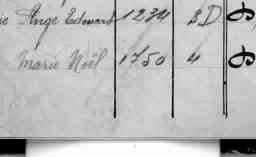 Ange Edouard 1234 3D
Marie Noël 1750 4